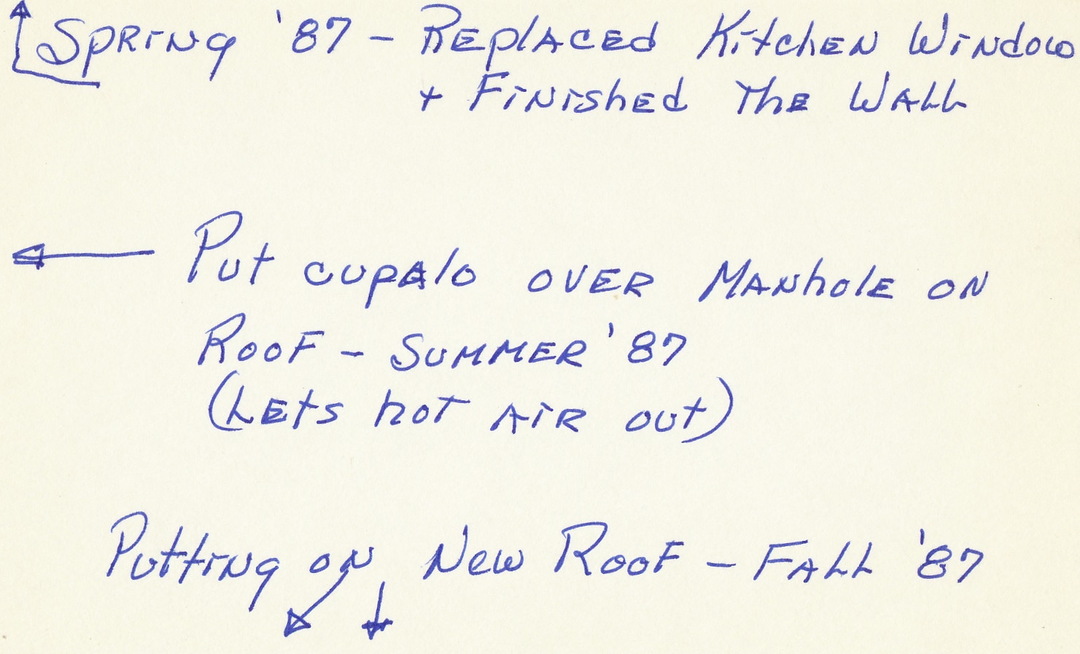 Spring '87 - Replaced Kitchen Window
+ Finished The Wall
Put cupalo over Manhole on
Roof - Summer '87
(Lets hot air out)
Putting on New Roof - Fall '87